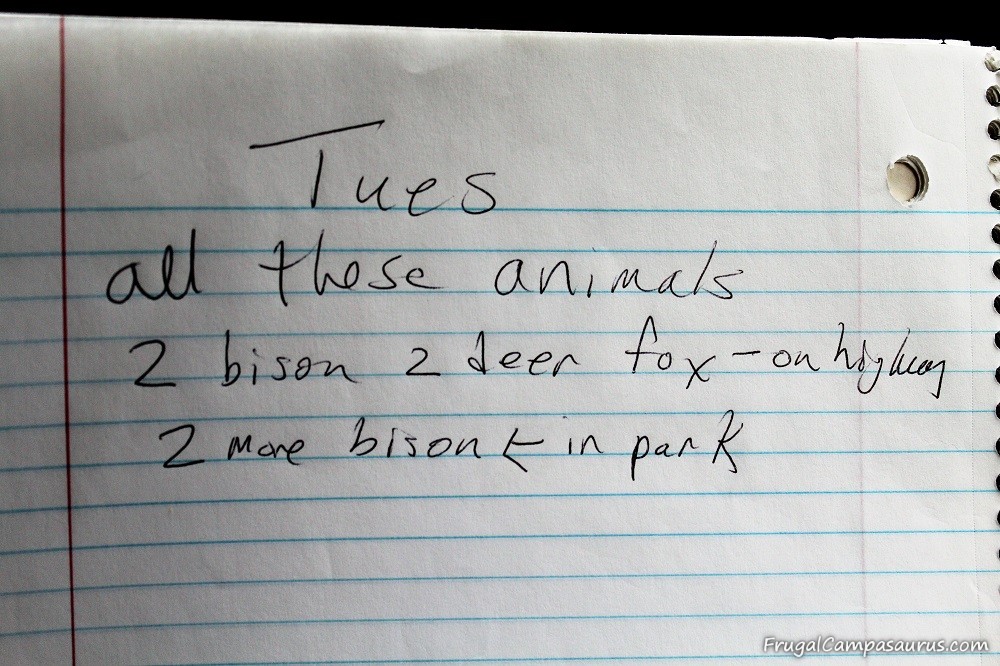 Tues
all these animals
2 bison 2 deer fox - on highway
2 more bison ← in park
FrugalCampasaurus.com